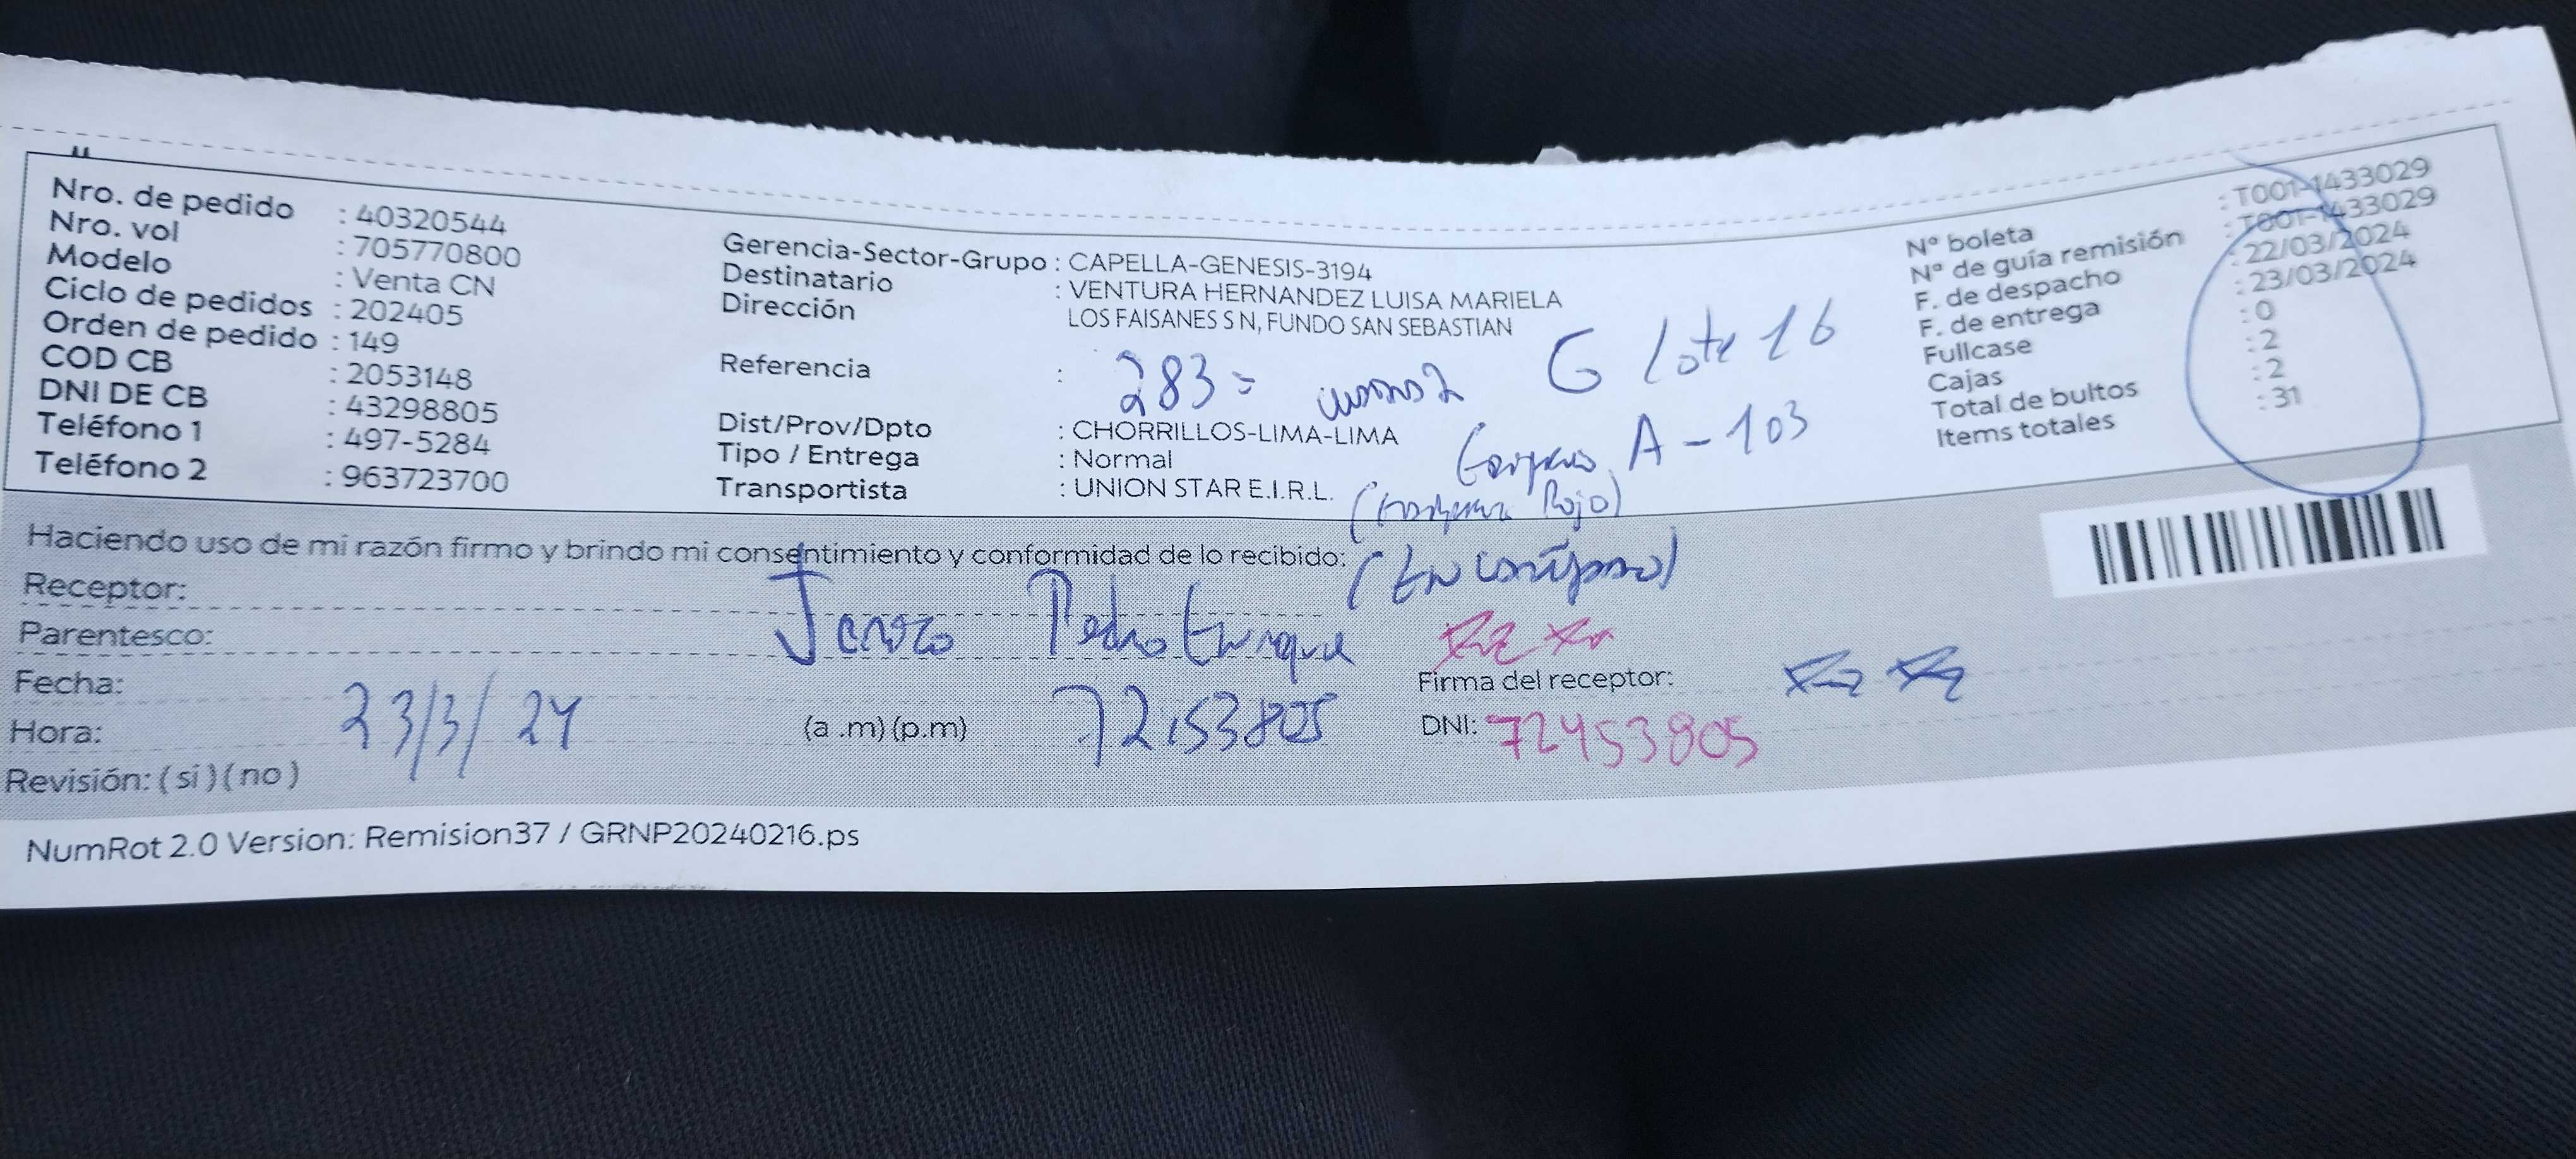 Nro. de pedido : 40320544
Nro. vol : 705770800
Modelo : Venta CN
Ciclo de pedidos : 202405
Orden de pedido : 149
COD CB : 2053148
DNI DE CB : 43298805
Teléfono 1 : 497-5284
Teléfono 2 : 963723700
Gerencia-Sector-Grupo : CAPELLA-GENESIS-3194
Destinatario : VENTURA HERNANDEZ LUISA MARIELA
Dirección LOS FAISANES S N, FUNDO SAN SEBASTIAN
Referencia : 283= G lote 16
Dist/Prov/Dpto : CHORRILLOS-LIMA-LIMA
A-103
Tipo / Entrega : Normal
Transportista : UNION STAR E.I.R.L.
Rojo)
N° boleta : T001-1433029
N° de guía remisión : T001-1433029
F. de despacho : 22/03/2024
F. de entrega : 23/03/2024
Fullcase : 0
Cajas : 2
Total de bultos : 2
Items totales : 31
Haciendo uso de mi razón firmo y brindo mi consentimiento y conformidad de lo recibido:
Receptor:
Parentesco: Pedro Enrique
Fecha: 23/3/24
Firma del receptor:
Hora: (a .m) (p.m)
DNI: 72453805
Revisión: ( sí ) ( no )
NumRot 2.0 Version: Remision37 / GRNP20240216.ps